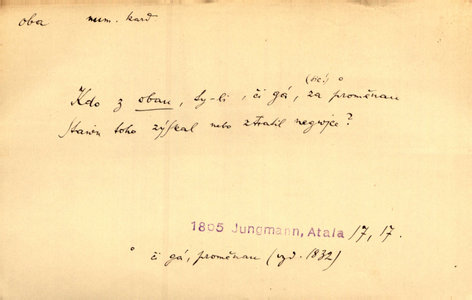 oba num. kard
(sic!) °
Kdo z obau, ty-li, či gá, za proměnau
stawu toho zýskal nebo ztratil negwjce?
1805 Jungmann, Atala 17, 17.
° či gá, proměnau (vyd. 1832)